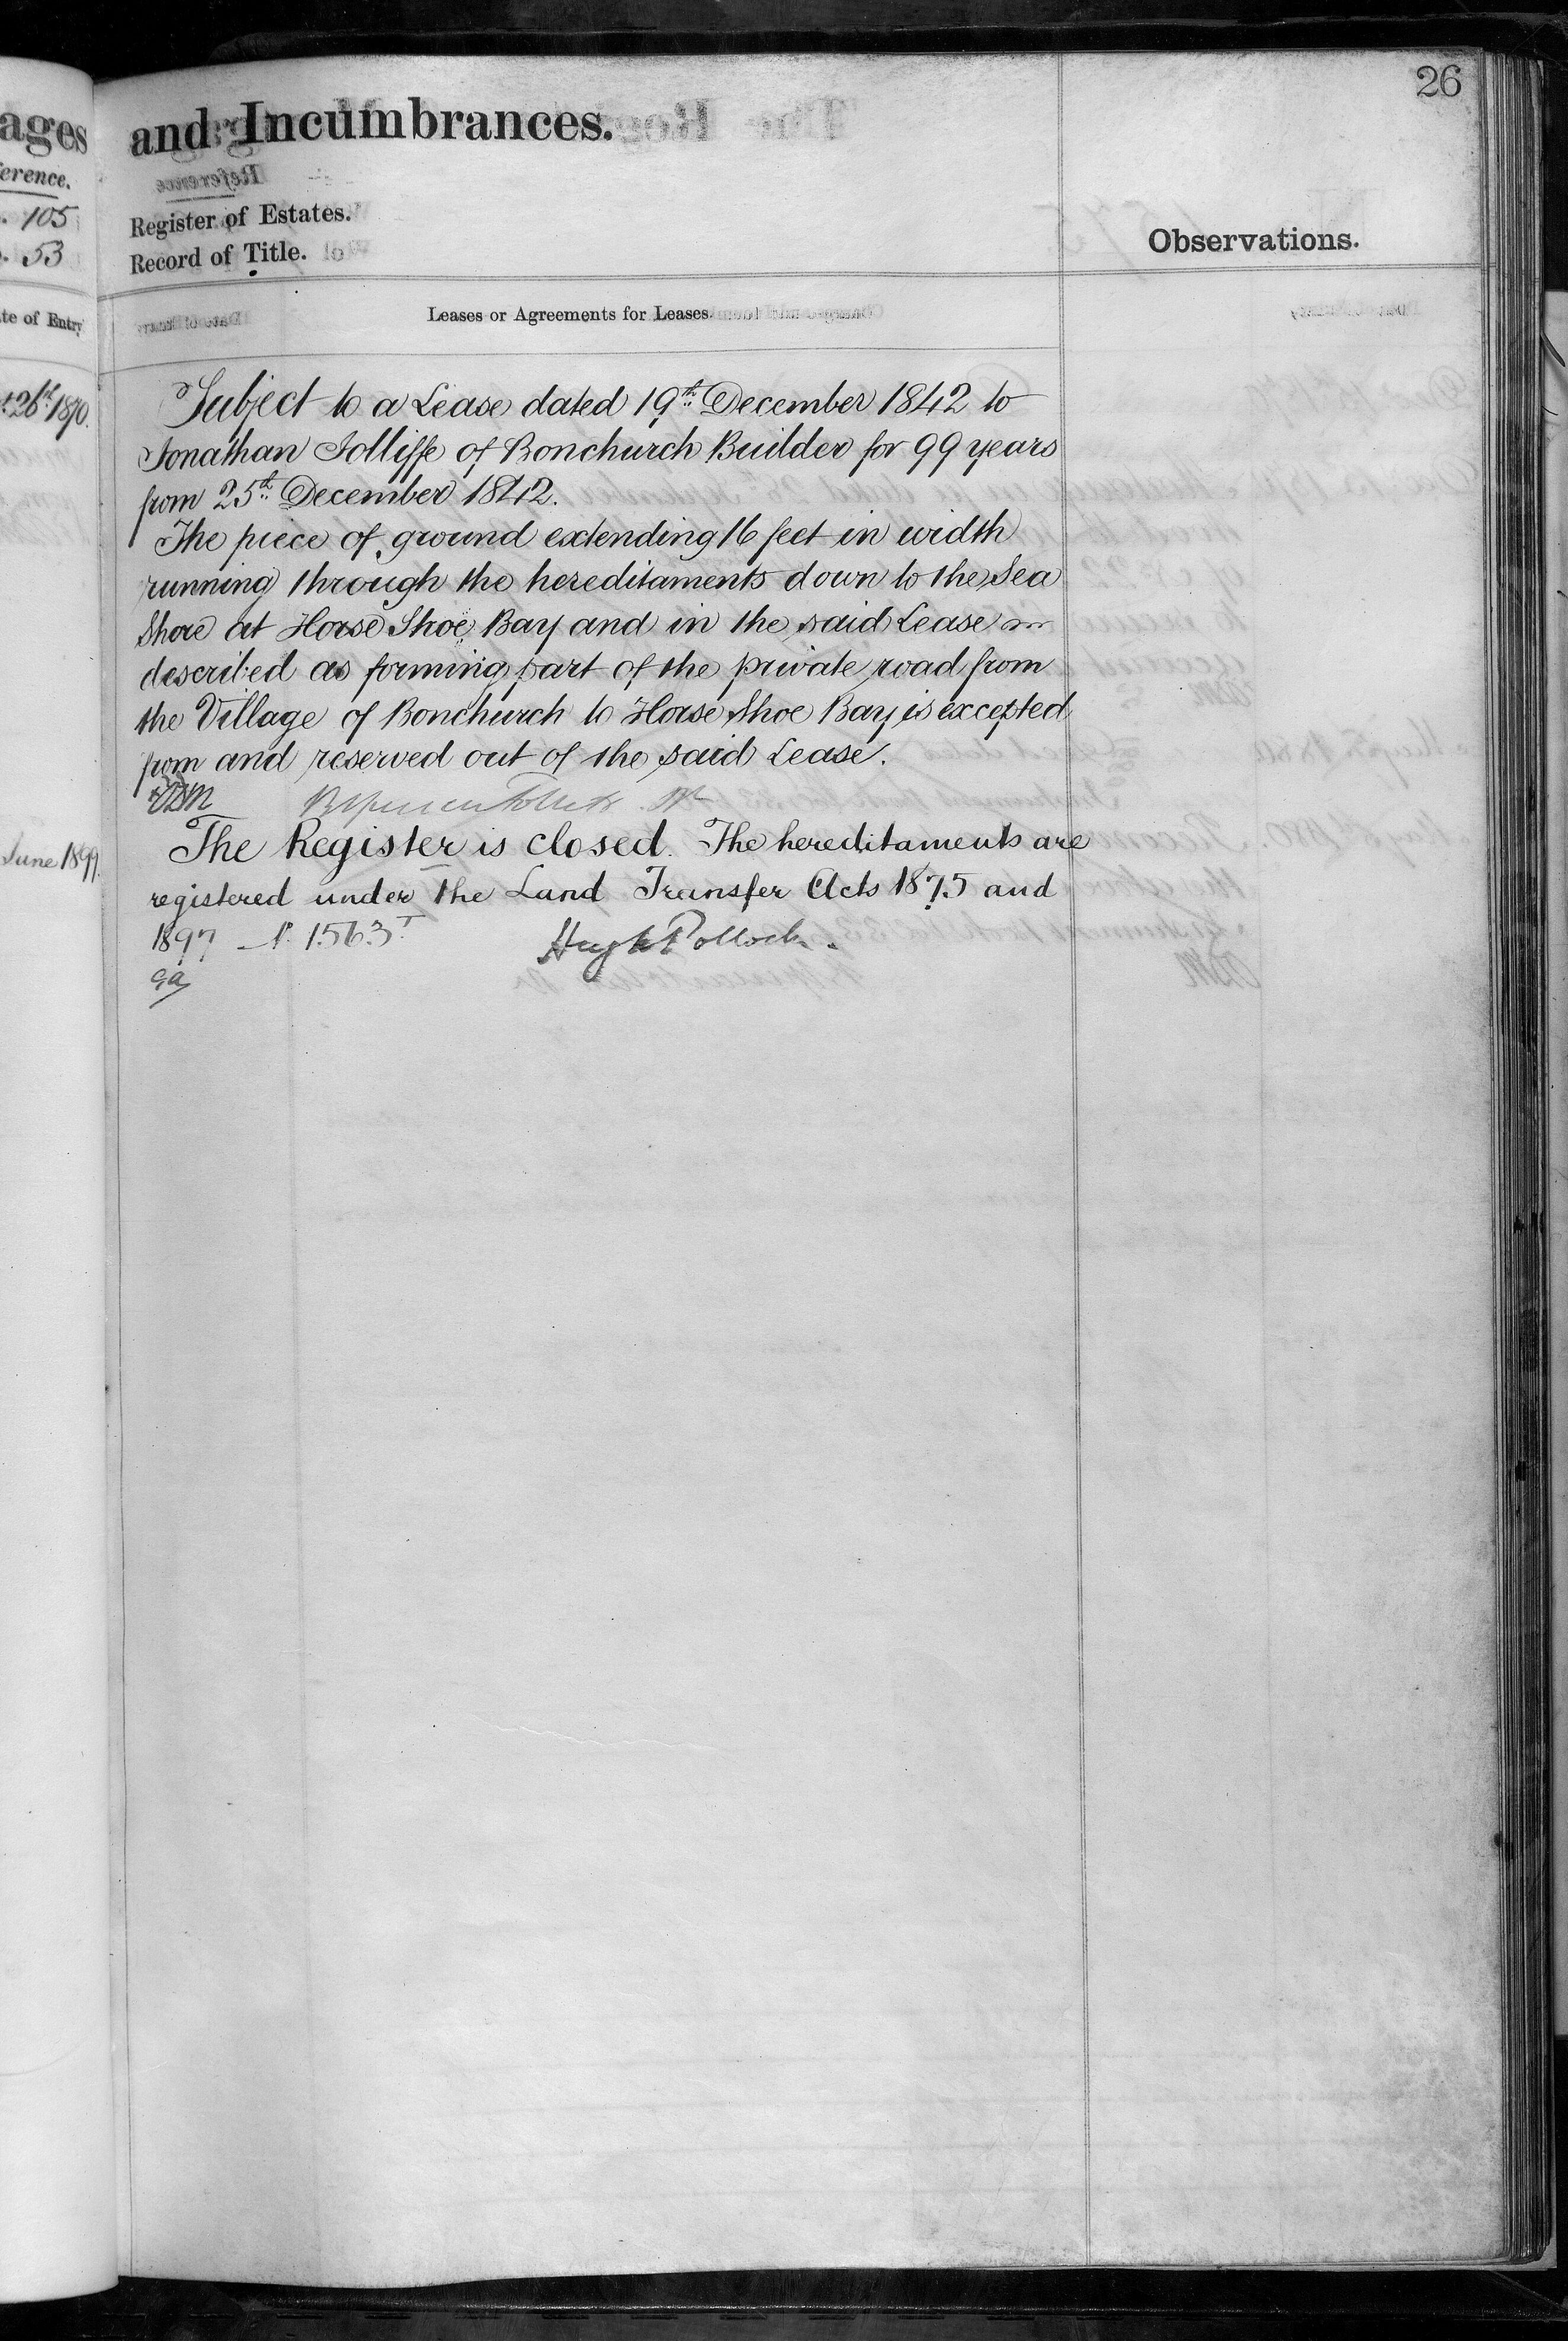 26
ages
and Incumbrances.
erence.
. 105
. 53
Register of Estates.
Record of Title.
Observations.
te of Entry
Leases or Agreements for Leases.
26th 1870.
Subject to a Lease dated 19th December 1842 to
Jonathan Jolliffe of Bonchurch Builder for 99 years
from 25th December 1842.
The piece of ground extending 16 feet in width
running through the hereditaments down to the Sea
Shore at Horse Shoe Bay and in the said Lease
described as forming part of the private road from
the Village of Bonchurch to Horse Shoe Bay is excepted
from and reserved out of the said Lease.
June 1899.
The Register is closed. The hereditaments are
registered under the Land Transfer Acts 1875 and
1897 No. 1563
Hugh Pollock.